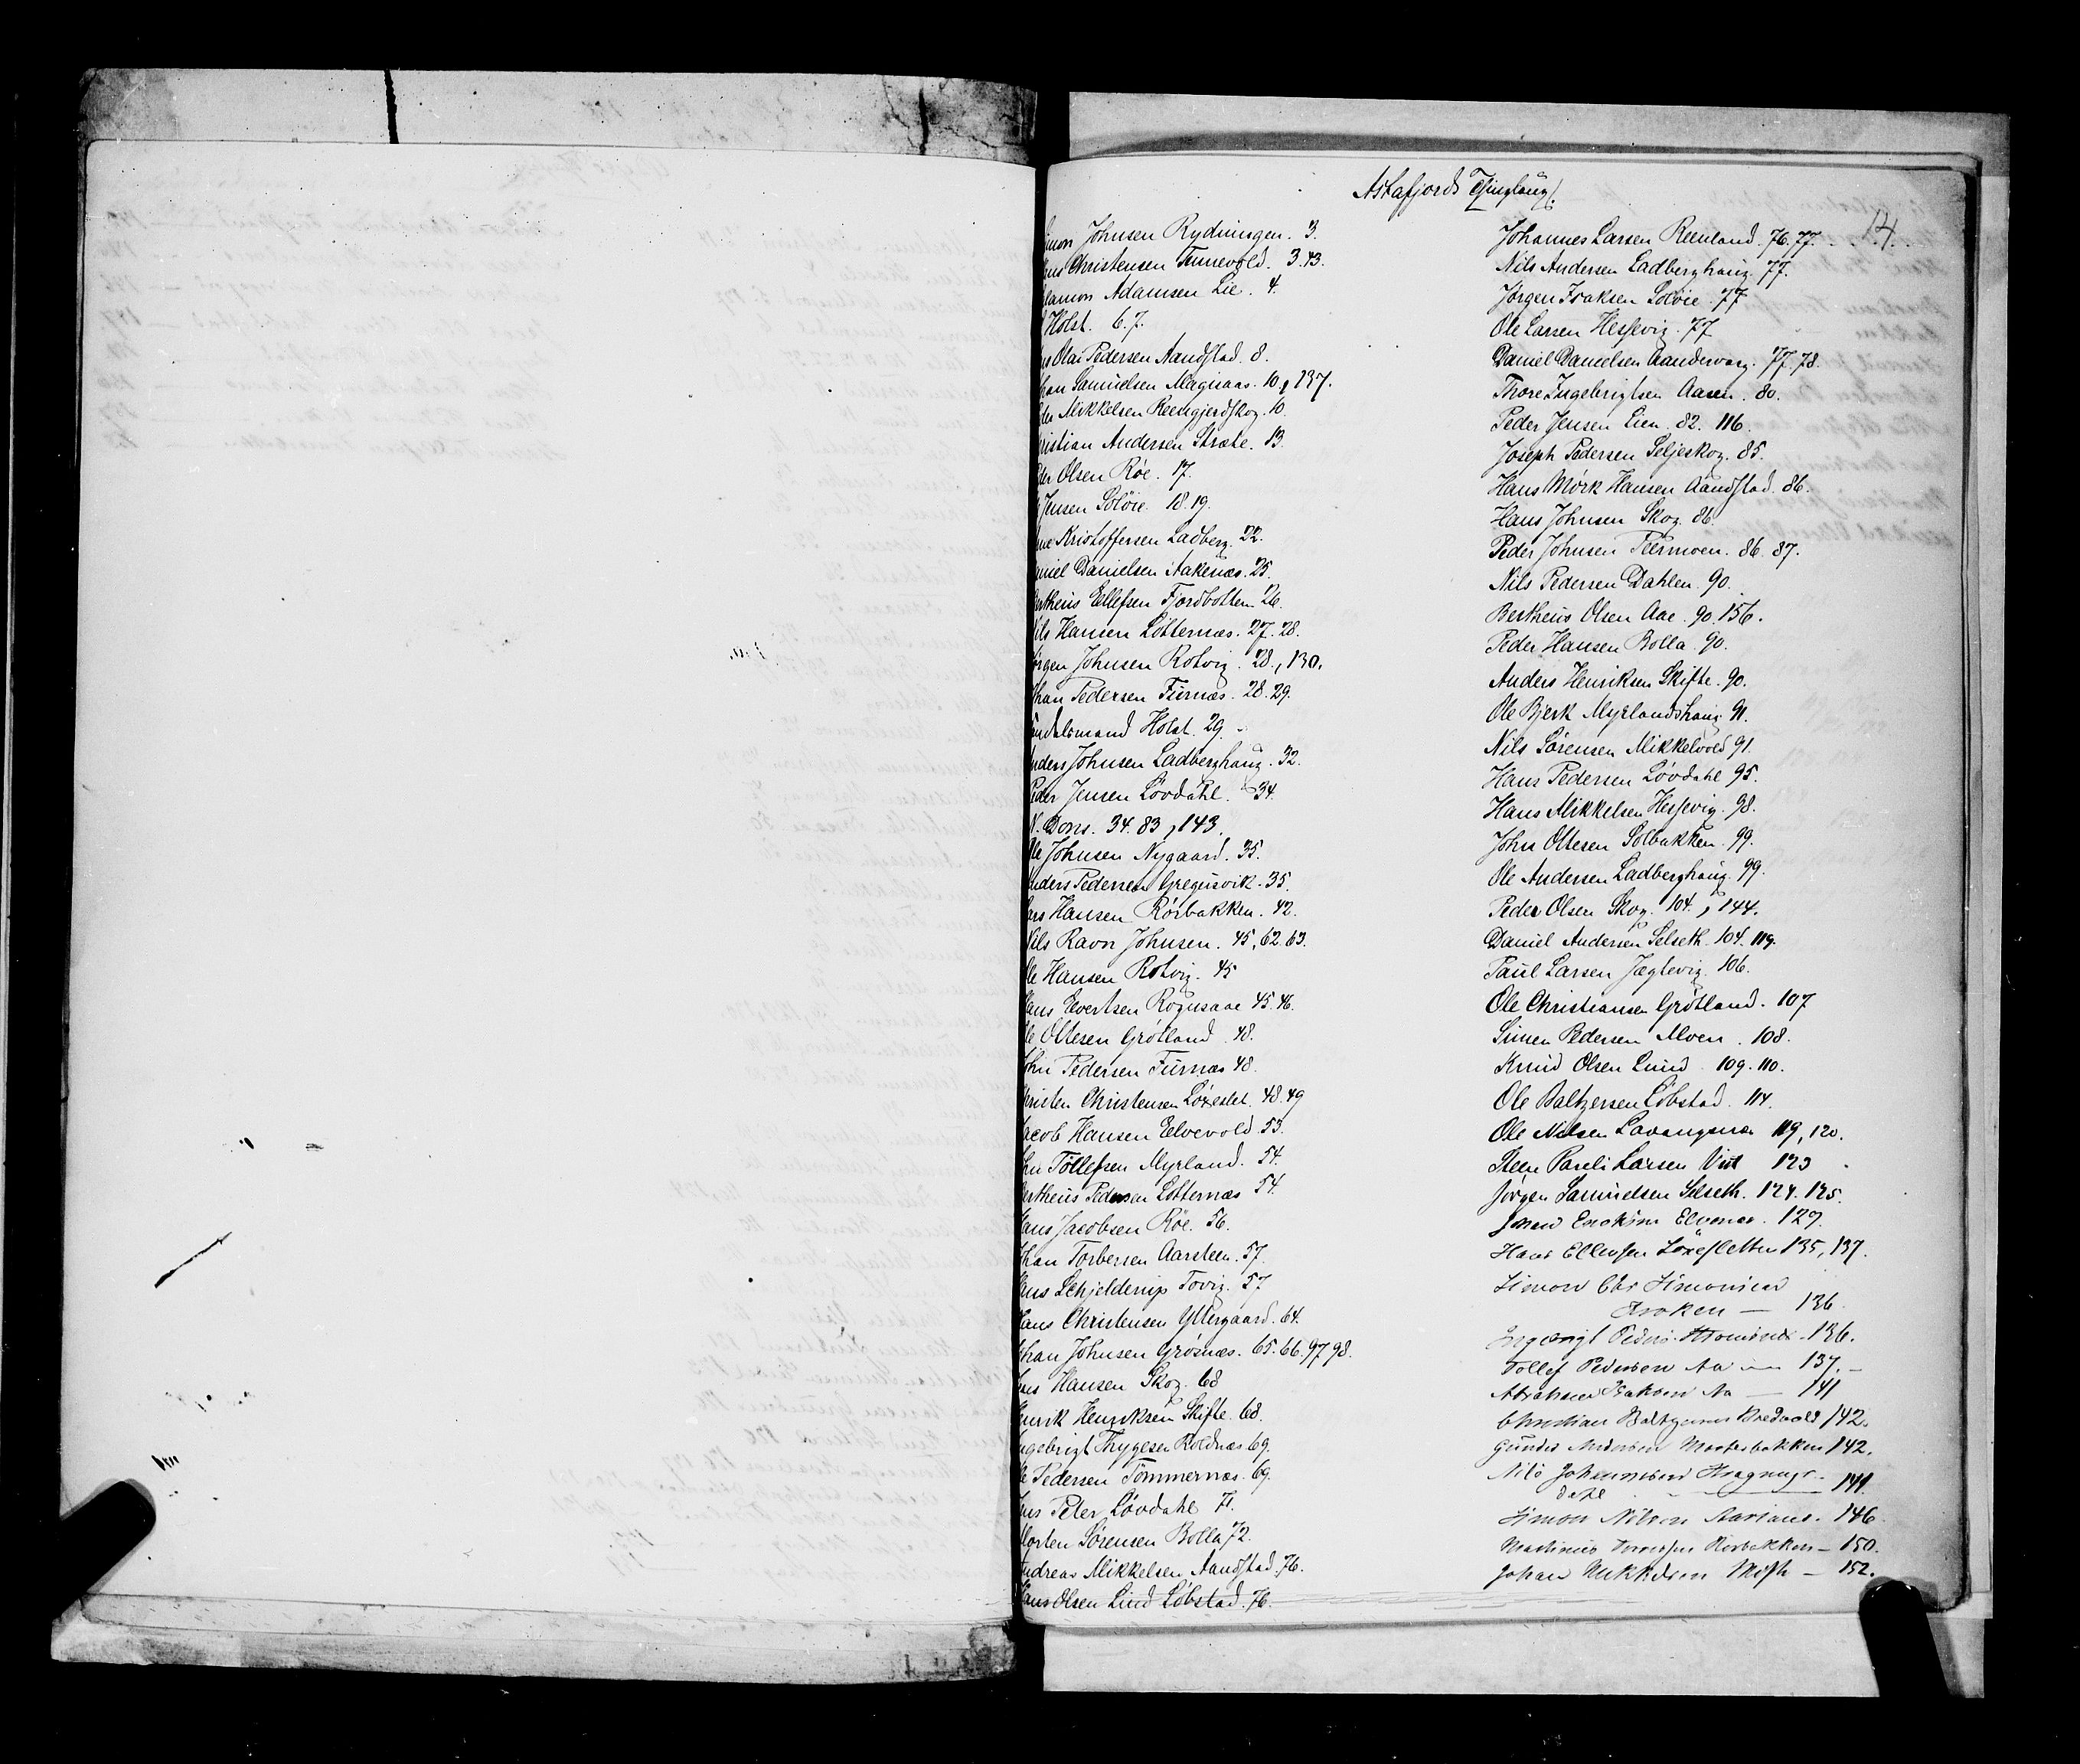 Astafjords Thinglaug.
14.
imon Johnsen Rydningen. 3.
ans Christensen Tennevold. 3.43.
lamon Adamsen Lie. 4.
Holst. 6.7.
Olai Pedersen Aandstad. 8.
han Samuelsen Magnaas. 10, 137.
der Mikkelsen Reensgjerdskog. 10.
ristian Andersen Stræte. 13.
der Olsen Røe. 17.
Jensen Soløie. 18.19.
Kristoffersen Ladberg. 22.
aniel Danielsen Aakenæs. 25.
ertheus Ellefsen Fjordbotten. 26.
ils Hansen Løtternæs. 27.28.
ørgen Johnsen Rotvig. 28., 130.
han Pedersen Furnæs. 28.29.
endelsmand Holst. 29.
nders Johnsen Ladberghaug. 32.
eder Jensen Løvdahl. 34.
N. Dons. 34. 83, 143.
le Johnsen Nygaard. 35.
nders Pedersen Gregusvik. 35.
ars Hansen Rørbakken. 42.
Nils Ravn Johnsen. 45, 62.63.
le Hansen Rotvig. 45
ans Evertsen Rognsaae 45.46.
le Oltesen Grøtland. 48.
ohn Pedersen Furnæs 48.
hristen Christensen Løxeslet. 48.49
acob Hansen Elvevold. 53.
hn Tollefsen Myrland. 54.
ertheus Pedersen Løtternæs 54.
ans Jacobsen Røe. 56.
han Torbersen Aarsteen. 57.
ans Schjelderup Tovig. 57
Hans Christensen Yttergaard. 64.
ohan Johnsen Grøsnæs. 65.66.97.98.
Hansen Skog. 68
enrik Henriksen Skifte. 68.
ngebrigt Thygesen Roldnæs 69.
le Pedersen Tømmernæs. 69.
Peter Løvdahl 71.
orten Sørensen Rolla 72.
ndreas Mikkelsen Aandstad. 76.
ans Olsen Lund Løbstad. 76.
Johannes Larsen Reenland. 76.77.
Nils Andersen Ladberghaug. 77.
Jørgen Isaksen Soløie. 77
Ole Larsen Hessevig. 77
Daniel Danielsen Aandervaag. 77.78.
Thore Ingebrigtsen Aasen. 80.
Peder Jensen Lien. 82. 116.
Joseph Pedersen Seljeskog. 85.
Hans Mørk Hansen Aandstad. 86.
Hans Johnsen Skog. 86.
Peder Johnsen Teermoen. 86. 87.
Nils Pedersen Dahlen. 90.
Bertheus Olsen Aae. 90. 156.
Peder Hansen Rolla. 90.
Anders Henriksen Skifte. 90.
Ole Bjerk Myrlandshaug. 91.
Nils Sørensen Mikkelvold 91.
Hans Pedersen Løvdahl 95.
Hans Mikkelsen Hessevig. 98.
John Oltesen Solbakken. 99.
Ole Andersen Ladberghaug. 99.
Peder Olsen Skog. 104., 144.
Daniel Andersen Selseth. 104. 119.
Paul Larsen Jægtevig. 106.
Ole Christiansen Grøtland. 107
Simen Pedersen Moen. 108.
Knud Olsen Lund. 109. 110.
Ole Baltzersen Løbstad. 114.
Ole Nilsen Lavangsnæs 119, 120.
Steen Pareli Larsen Vist 123
Jørgen Samuelsen Selseth. 124. 125.
Enoksen Elvenæs. 129.
Hans Ellevsen Løxesletten 135, 137.
Simon Chr Simonsen
Kroken — 136.
136.
Tollef Pedersen Aa — 137.
Abraham Isaksen Aa — 141
Christian Baltzersen Bredvold 142.
Andersen 142.
Nils Johannesen
dahl — 141.
Simon Nilsen 146.
Martinus Rørbakken — 150.
Johan Mikkelsen — 152.